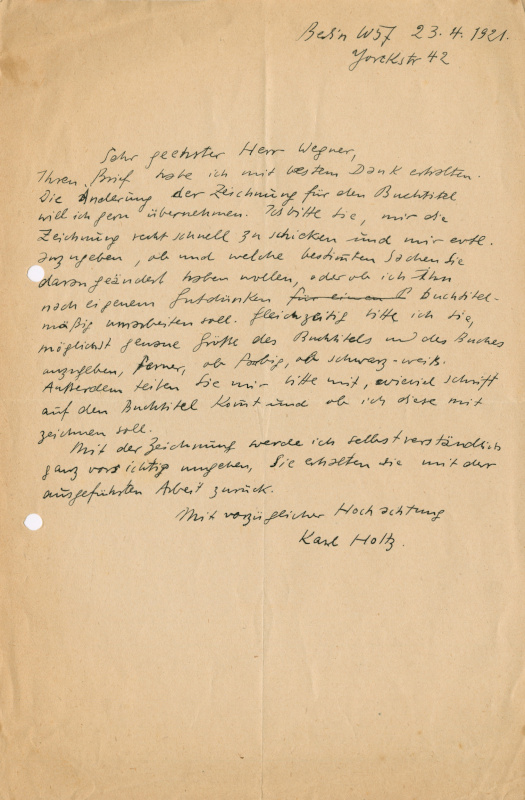 Berlin W57 23.4.1921.
Yorckstr 42
Sehr geehrter Herr Wegner,
Ihren Brief habe ich mit bestem Dank erhalten.
Die Änderung der Zeichnung für den Buchtitel
will ich gern übernehmen. Ich bitte Sie, mir die
Zeichnung recht schnell zu schicken und mir evtl.
anzugeben, ob und welche bestimten Sachen Sie
daran geändert haben wollen, oder ob ich ihn
nach eigenem Gutdünken für einen buchtitel-
mäßig umarbeiten soll. Gleichzeitig bitte ich Sie,
möglichst genaue Größe des Buchtitels und des Buches
anzugeben, ferner, ob farbig, ob schwarz-weiß.
Außerdem teilen Sie mir bitte mit, wieviel Schrift
auf den Buchtitel komt und ob ich diese mit
zeichnen soll.
Mit der Zeichnung werde ich selbstverständlich
ganz vorsichtig umgehen, Sie erhalten sie mit der
ausgeführten Arbeit zurück.
Mit vorzüglicher Hochachtung
Karl Holtz.